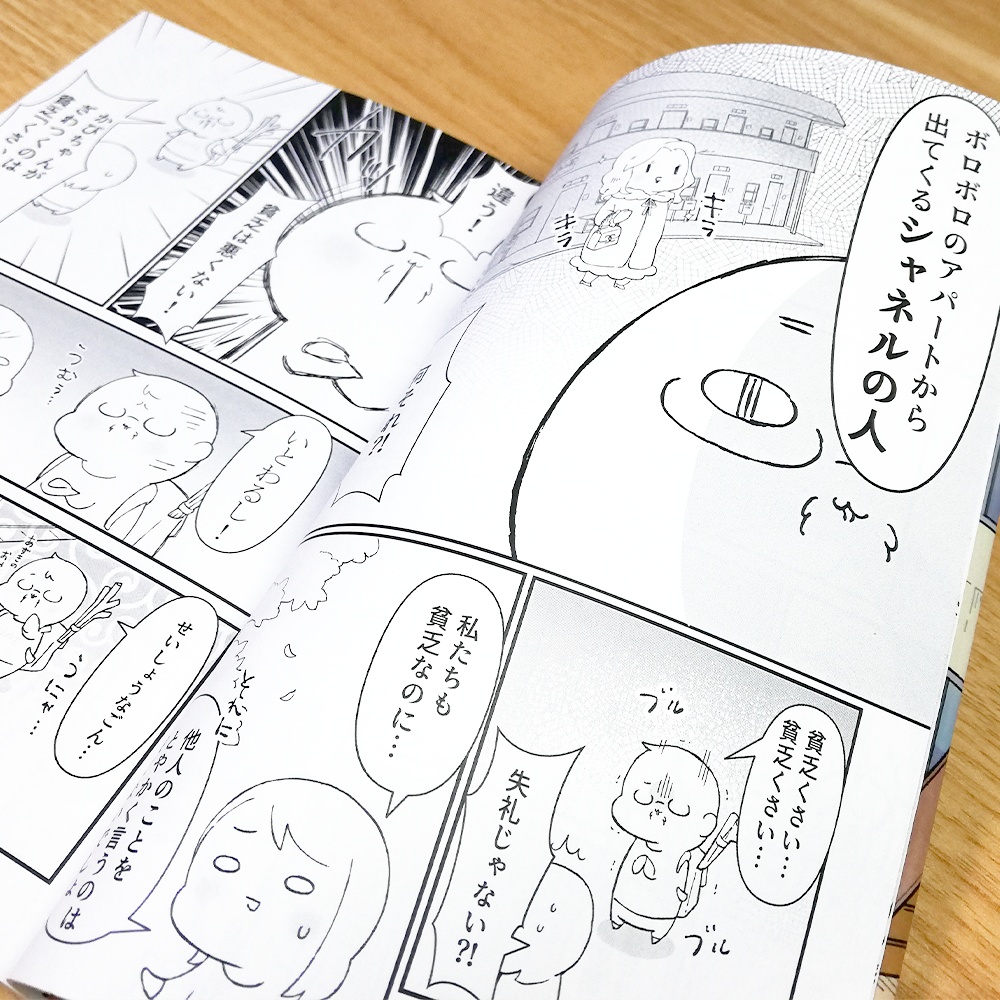 ボロボロのアパートから
出てくるシャネルの人
キラ
キラ
何それ?!
貧乏くさい…
貧乏くさい…
ブル
ブル
失礼じゃない?!
私たちも
貧乏なのに…
他人のことを
とやかく言うのは
違う!
貧乏は悪くない!
カッ
かびちゃんが
ざわつくのは
貧乏くさ
いとわるし!
うむぅ…
せいしょうなごん…
うにゃ…